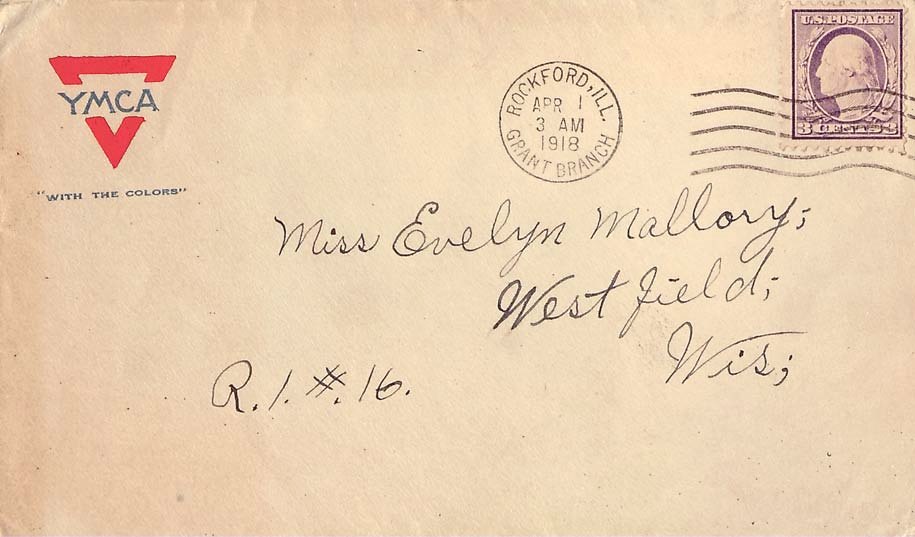 YMCA
"WITH THE COLORS"
ROCKFORD, ILL.
APR 1
3 AM
1918
GRANT BRANCH
U.S. POSTAGE
3 CENTS 3
Miss Evelyn Mallory;
Westfield;
Wis;
R.1. #.16.